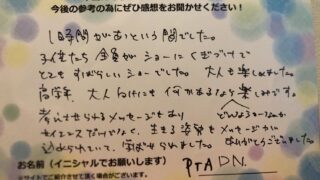 今後の参考の為にぜひ感想をお聞かせください!
1時間があっという間でした。
子供たち全員がショーにくぎづけで
とてもすばらしいショーでした。大人も楽しめました。
高学年、大人向けにも何かあるなら楽しみです。
どんなショーなんだろう
考えさせられるメッセージもあり
サイエンスだけでなく、生きる姿勢もメッセージが
込められていて、学ばせられました。ありがとうございました。
お名前(イニシャルでお願いします)
PTA D.N.
*サイトでご紹介させて頂く場合がございます。